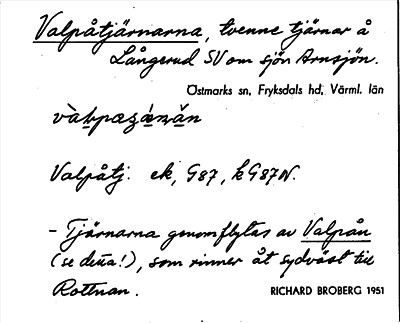 Valpåtjärnarna, tvenne tjärnar å
Långerud SV om sjön Arnsjön.
Östmarks sn, Fryksdals hd, Värml. län
Valpåtj. ek, G87, kG87N.
- Tjärnarna genomflytas av Valpån
(se denna!), som rinner åt sydväst till
Rottnan.
RICHARD BROBERG 1951